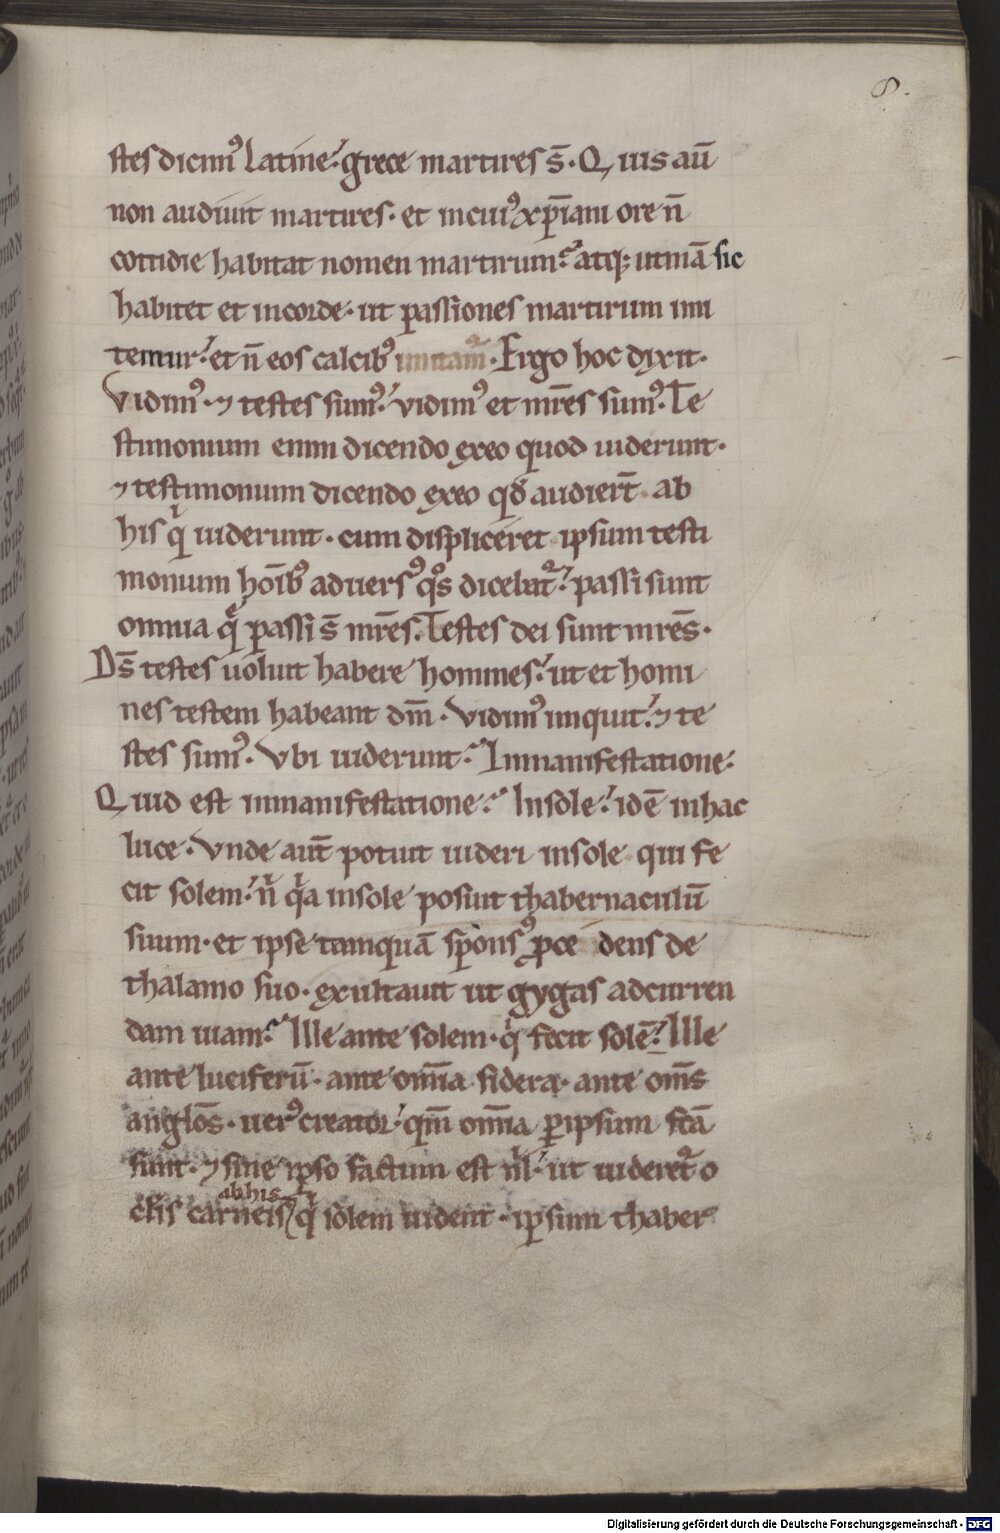 8.
stes dicim᷒ latine. grece martires s̄. Quis aū
non audiuit martires. et incui᷒ xp̄iani ore n̄
cottidie habitat nomen martirum? atq; utinā sic
habitet et incorde. ut passiones martirum imi
temur. et n̄ eos calcib᷒ Ergo hoc dixit.
Vidim᷒. ⁊ testes sum᷒. vidim᷒ et mr̄es sum᷒. Te
stimonium enim dicendo exeo quod uiderunt.
⁊ testimonium dicendo exeo qđ audiert̄. ab
his qͥ uiderunt. cum displiceret ipsum testi
monium hoīb᷒ aduers᷒ qͦs dicebat᷑. passi sunt
omnia q̄ passi s̄ mr̄es. Testes dei sunt mr̄es.
Ds̄ testes uoluit habere homines. ut et homi
nes testem habeant dm̄. Vidim᷒ inquit. ⁊ te
stes sum᷒. Vbi uiderunt? Inmanifestatione.
Quid est inmanifestatione? Insole. idē inhac
luce. Vnde aut̄ potuit uideri insole qui fe
cit solem. nͥ qͥa insole posuit thabernaculū
suum. et ipse tamquā spons᷒ ꝓce dens de
thalamo suo. exultauit ut gygas adcurren
dam uiam? Ille ante solem. qͥ fecit solē. Ille
ante luciferū. ante om̄ia sidera. ante om̄s
anglōs. uer᷒ creator. qm̄ om̄ia ꝑipsum fc̄a
sunt. ⁊ sine ipso factum est nͥl. ut uideret᷑ o
abhis
cl̄is carneis qͥ solem uident. ipsum thaber
Digitalisierung gefördert durch die Deutsche Forschungsgemeinschaft - DFG